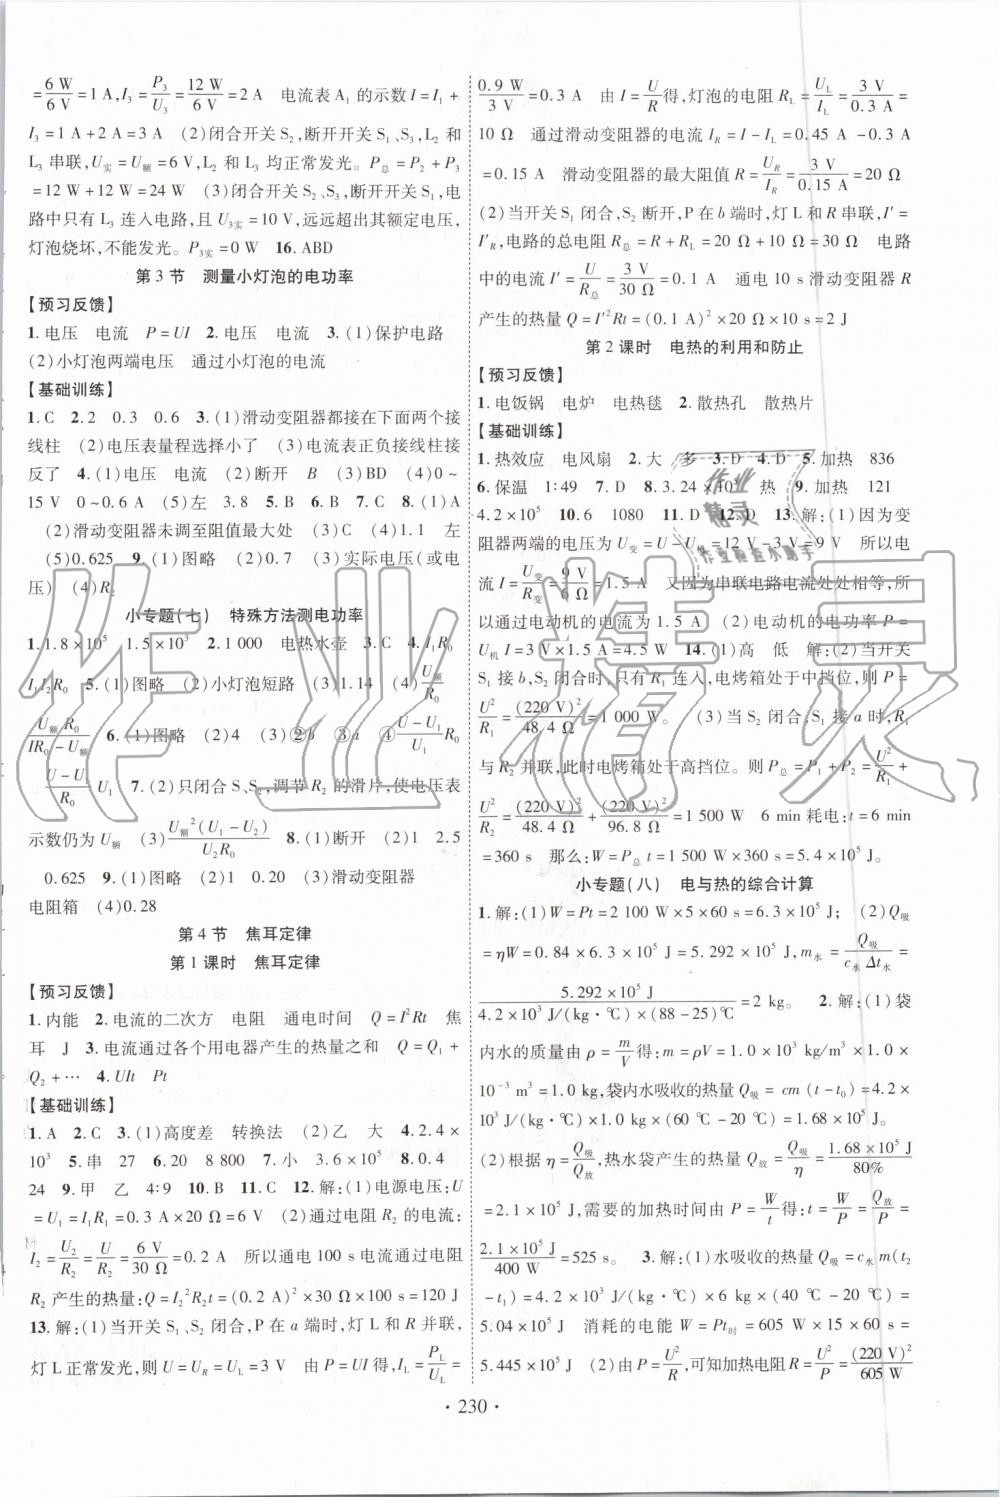 =6 W/6 V=1 A,I₃=P₃/U₃=12 W/6 V=2 A 电流表 A₁ 的示数 I=I₁+
I₃=1 A+2 A=3 A (2)闭合开关 S₂,断开开关 S₁、S₃,L₂ 和
L₃ 串联,U实=U额=6 V,L₂ 和 L₃ 均正常发光。P总=P₂+P₃
=12 W+12 W=24 W (3)闭合开关 S₁、S₃,断开开关 S₂,电
路中只有 L₃ 连入电路,且 U₃实=10 V,远远超出其额定电压,
灯泡烧坏,不能发光。P₃实=0 W 16.ABD
第 3 节 测量小灯泡的电功率
【预习反馈】
1.电压 电流 P=UI 2.电压 电流 3.(1)保护电路
(2)小灯泡两端电压 通过小灯泡的电流
【基础训练】
1.C 2.2 0.3 0.6 3.(1)滑动变阻器都接在下面两个接
线柱 (2)电压表量程选择小了 (3)电流表正负接线柱接
反了 4.(1)电压 电流 (2)断开 B (3)BD (4)0~
15 V 0~0.6 A (5)左 3.8 5.B 6.B 7.C 8.(1)A
(2)滑动变阻器未调至阻值最大处 (3)C (4)1.1 左
(5)0.625 9.(1)图略 (2)图略 (3)实际电压(或电
压) (4)R₂
小专题(七) 特殊方法测电功率
1.1.8×10⁵ 1.5×10³ 2.1 000 电热水壶 3.C 4.I₁R₀
I₁I₂R₀ 5.(1)图略 (2)小灯泡短路 (3)1.14 (4)U额/R₀
U额R₀/IR₀-U额 6.(1)图略 (2)4 (3)②b ③a ④U-U₁/U₁ R₀
U-U₁/R₀ U₁ 7.(2)只闭合 S、S₂,调节 R₂ 的滑片,使电压表
示数仍为 U额 (3)U额²(U₁-U₂)/U₂R₀ 8.(1)断开 (2)1 2.5
0.625 9.(1)图略 (2)1 0.20 (3)滑动变阻器
电阻箱 (4)0.28
第 4 节 焦耳定律
第 1 课时 焦耳定律
【预习反馈】
1.内能 2.电流的二次方 电阻 通电时间 Q=I²Rt 焦
耳 J 3.电流通过各个用电器产生的热量之和 Q=Q₁+
Q₂+⋯ 4.UIt Pt
【基础训练】
1.A 2.C 3.(1)高度差 转换法 (2)乙 大 4.2.4×
10³ 5.串 27 6.20 8 800 7.小 3.6×10⁵ 8.0.4
24 9.甲 乙 4∶9 10.B 11.C 12.解:(1)电源电压:U
=U₁=I₁R₁=0.3 A×20 Ω=6 V (2)通过电阻 R₂ 的电流:
I₂=U₂/R₂=U/R₂=6 V/30 Ω=0.2 A 所以通电 100 s 电流通过电阻
R₂ 产生的热量:Q=I₂²R₂t=(0.2 A)²×30 Ω×100 s=120 J
13.解:(1)当开关 S₁、S₂ 闭合,P 在 a 端时,灯 L 和 R 并联,
灯 L 正常发光,则 U=U_R=U_L=3 V 由 P=UI 得,I_L=P_L/U_L=
0.9 W/3 V=0.3 A 由 I=U/R得,灯泡的电阻 R_L=U_L/I_L=3 V/0.3 A=
10 Ω 通过滑动变阻器的电流 I_R=I-I_L=0.45 A-0.3 A
=0.15 A 滑动变阻器的最大阻值 R=U_R/I_R=3 V/0.15 A=20 Ω
(2)当开关 S₁ 闭合,S₂ 断开,P 在 b 端时,灯 L 和 R 串联,I′=
I′_R,电路的总电阻 R总=R+R_L=20 Ω+10 Ω=30 Ω 电路
中的电流 I′=U/R总=3 V/30 Ω=0.1 A 通电 10 s 滑动变阻器 R
产生的热量 Q=I′²Rt=(0.1 A)²×20 Ω×10 s=2 J
第 2 课时 电热的利用和防止
【预习反馈】
1.电饭锅 电炉 电热毯 2.散热孔 散热片
【基础训练】
1.热效应 电风扇 2.大 多 3.D 4.D 5.加热 836
6.保温 1∶49 7.D 8.3.24×10⁴ 热 9.加热 121
4.2×10⁵ 10.6 1080 11.D 12.D 13.解:(1)因为变
阻器两端的电压为 U变=U-U =12 V-3 V=9 V 所以电
流 I=U变/R变=9 V/6 Ω=1.5 A 又因为串联电路电流处处相等,所
以通过电动机的电流为 1.5 A (2)电动机的电功率 P=
U机I=3 V×1.5 A=4.5 W 14.(1)高 低 解:(2)当开关
S₁ 接 b,S₂ 闭合时,只有 R₁ 连入,电烤箱处于中挡位,则 P=
U²/R₁=(220 V)²/48.4 Ω=1 000 W。 (3)当 S₂ 闭合,S₁ 接 a 时,R₁
与 R₂ 并联,此时电烤箱处于高挡位。则 P总=P₁+P₂=U²/R₁+
U²/R₂=(220 V)²/48.4 Ω+(220 V)²/96.8 Ω=1 500 W 6 min 耗电:t=6 min
=360 s 那么:W=P总t=1 500 W×360 s=5.4×10⁵ J。
小专题(八) 电与热的综合计算
1.解:(1)W=Pt=2 100 W×5×60 s=6.3×10⁵ J; (2)Q吸
=ηW=0.84×6.3×10⁵ J=5.292×10⁵ J,m水=Q吸/c水Δt水=
5.292×10⁵ J/4.2×10³ J/(kg·℃)×(88-25)℃=2 kg。 2.解:(1)袋
内水的质量由 ρ=m/V得:m=ρV=1.0×10³ kg/m³×1.0×
10⁻³ m³=1.0 kg,袋内水吸收的热量 Q吸=cm(t-t₀)=4.2×
10³ J/(kg·℃)×1.0 kg×(60 ℃-20 ℃)=1.68×10⁵ J。
(2)根据 η=Q吸/Q放,热水袋产生的热量 Q放=Q吸/η=1.68×10⁵ J/80%
=2.1×10⁵ J,需要的加热时间由 P=W/t得:t=W/P=Q放/P=
2.1×10⁵ J/400 W=525 s。 3.解:(1)水吸收的热量 Q吸=c水m(t₂
-t₁)=4.2×10³ J/(kg·℃)×6 kg×(40 ℃-20 ℃)=
5.04×10⁵ J 消耗的电能 W=Pt时=605 W×15×60 s=
5.445×10⁵ J (2)由 P=U²/R,可知加热电阻 R=U²/P=(220 V)²/605 W
· 230 ·
作业精灵
作业精灵
作业检查小助手